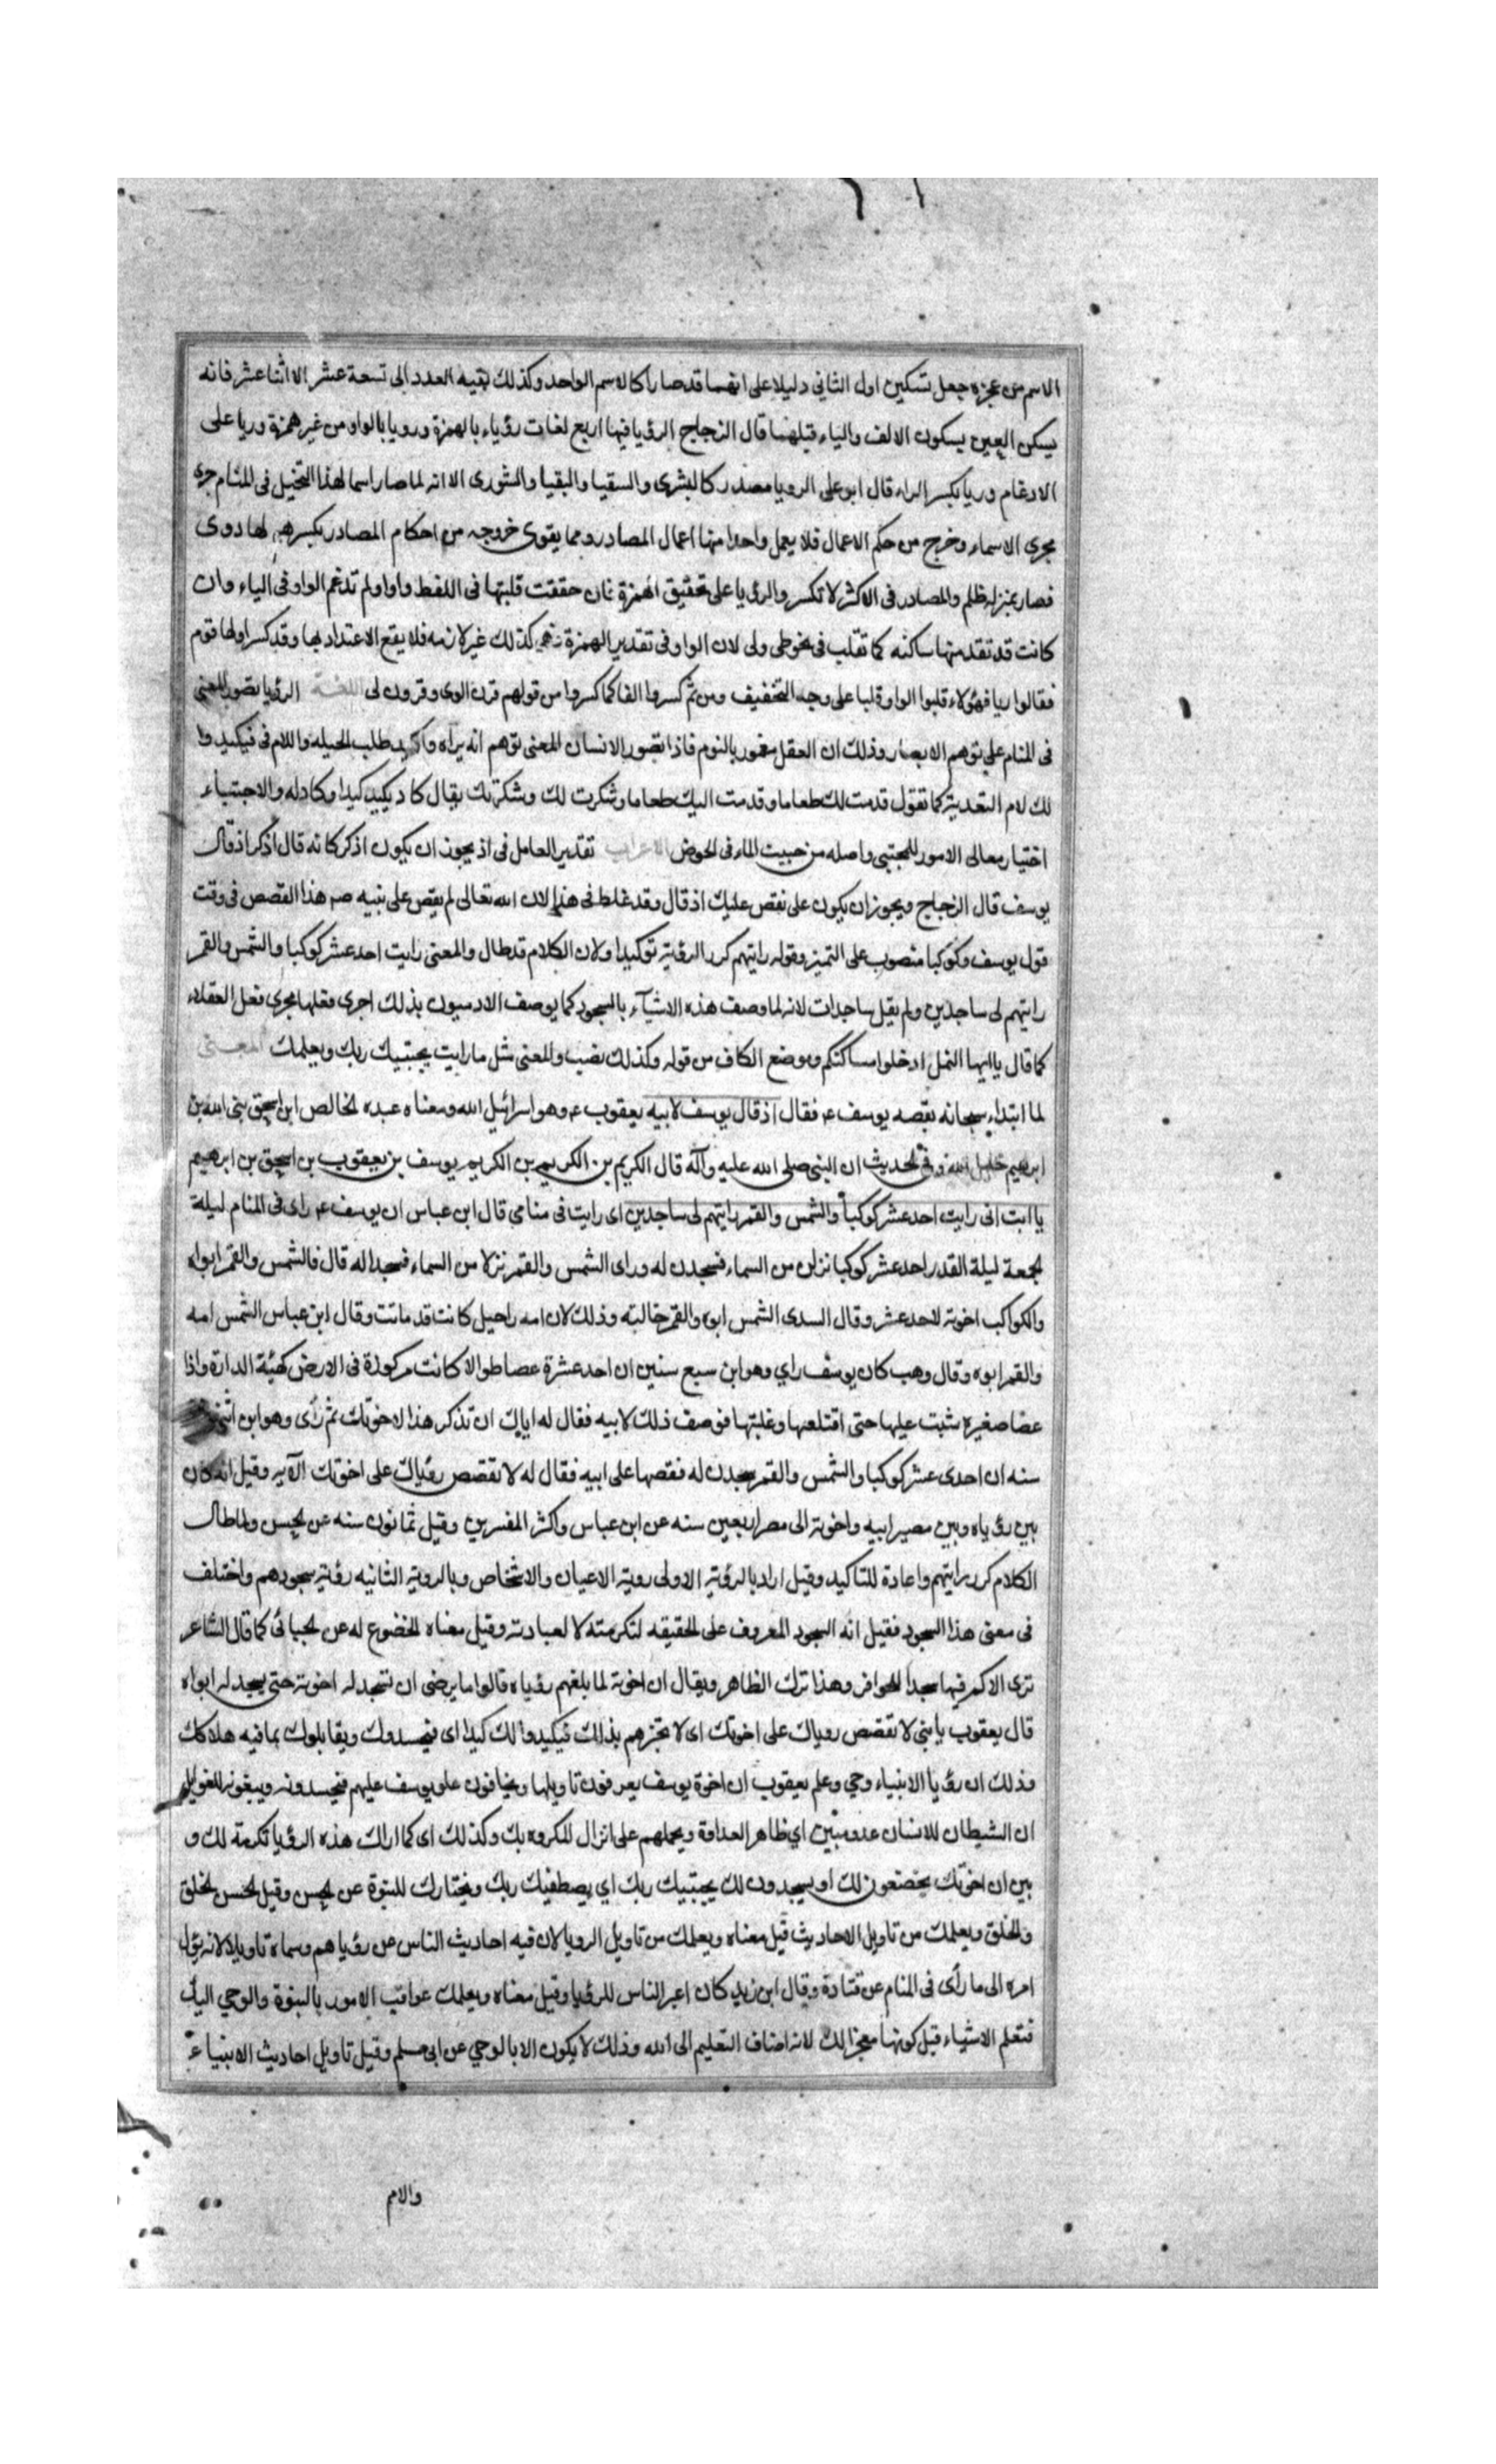 الاسم من عجزه جعل تسكين اول الثانى دليلا على انهما قد صارا كالاسم الواحد وكذلك بقيه العدد الى تسعة عشر الا اثنا عشر فانه
يسكن العين بسكون الالف والياء قبلهما قال الزجاج الرؤيا فيها اربع لغات رؤياء بالهمزة ورويا بالواو من غير همزة وريا على
الادغام وريا بكسر الراء قال ابو على الرويا مصدر كالبشرى والسقيا والبقيا والشورى الا انه لما صار اسما لهذا التخيل فى المنام جرى
مجرى الاسماء وخرج من حكم الاعمال فلا يعمل واحدا منها اعمال المصادر ومما يقوى خروجه من احكام المصادر تكسيرهم لها روى
فصار بمنزله ظلم والمصادر فى الاكثر لا تكسر والرؤيا على تحقيق الهمزة فان حققت قلبتها فى اللفظ واوا ولم تدغم الواو فى الياء وان
كانت قد تقدمتها ساكنه كما تقلب فى نحو طى ولى لان الواو فى تقدير الهمزة فهى كذلك غير لازمه فلا يقع الاعتداد بها وقد كسر اولها قوم
فقالوا ريا فهؤلاء قلبوا الواو قلبا على وجه التخفيف ومن ثم كسروا الفا كما كسروا من قولهم قرن الوى وقرون لى اللغة الرؤيا تصور المعنى
فى المنام على توهم الابصار وذلك ان العقل مغمور بالنوم فاذا تصور الانسان المعنى توهم انه يراه والكيد طلب الحيله واللام فى فيكيدوا
لك لام التعدية كما تقول قدمت لك طعاما وقدمت اليك طعاما وشكرت لك وشكرتك يقال كاد يكيد كيدا وكاد له والاجتباء
اختيار معالى الامور للمجتبى واصله من جبيت الماء فى الحوض الاعراب تقدير العامل فى اذ يجوز ان يكون اذكر كانه قال اذكر اذ قال
يوسف قال الزجاج ويجوز ان يكون على نقص عليك اذ قال وقد غلط فى هذا لان الله تعالى لم يقص على نبيه صم هذا القصص فى وقت
قول يوسف وكوكبا منصوب على التميز وقوله رايتهم كرر الرؤية توكيدا ولان الكلام قد طال والمعنى رايت احد عشر كوكبا والشمس والقمر
رايتهم لى ساجدين ولم يقل ساجدات لانه لما وصف هذه الاشيآء بالسجود كما يوصف الادميون بذلك اجرى فعلها مجرى فعل العقلاء
كما قال يا ايها النمل ادخلوا مساكنكم وموضع الكاف من قوله وكذلك نصب والمعنى مثل ما رايت يجتبيك ربك ويعلمك المعنى
لما ابتداء سبحانه بقصه يوسف ع فقال اذ قال يوسف لابيه يعقوب ع وهو اسرائيل الله ومعناه عبده الخالص ابن اسحق نبى الله بن
ابرهيم خليل الله وفى الحديث ان النبى صلى الله عليه وآله قال الكريم بن الكريم بن الكريم يوسف بن يعقوب بن اسحق بن ابرهيم
يا ابت انى رايت احد عشر كوكبا والشمس والقمر رايتهم لى ساجدين اى رايت فى منامى قال ابن عباس ان يوسف ع راى فى المنام ليلة
الجمعة ليلة القدر احد عشر كوكبا نزلن من السماء فسجدن له وراى الشمس والقمر نزلا من السماء فسجدا له قال فالشمس والقمر ابواه
والكواكب اخوته الاحد عشر وقال السدى الشمس ابوه والقمر خالته وذلك لان امه راحيل كانت قد ماتت وقال ابن عباس الشمس امه
والقمر ابوه وقال وهب كان يوسف راي وهو ابن سبع سنين ان احد عشرة عصا طوالا كانت مركوزة فى الارض كهيئة الدارة واذا
عصا صغيره تثبت عليها حتى اقتلعها وغلبتها فوصف ذلك لابيه فقال له اياك ان تذكر هذا لاخوتك ثم رأى وهو ابن اثنتى
سنه ان احدى عشر كوكبا والشمس والقمر سجدن له فقصها على ابيه فقال له لا تقصص رؤياك على اخوتك الآيه وقيل انه كان
بين رؤياه وبين مصير ابيه واخوته الى مصر اربعين سنه عن ابن عباس واكثر المفسرين وقيل ثمانون سنه عن الحسن ولما طال
الكلام كرر رايتهم واعادة للتاكيد وقيل اراد بالرؤية الاولى روية الاعيان والاشخاص وبالروية الثانيه رؤية سجودهم واختلف
فى معنى هذا السجود فقيل انه السجود المعروف على الحقيقه لتكرمته لا لعبادته وقيل معناه الخضوع له عن الجبائى كما قال الشاعر
ترى الاكم فيها سجدا للحوافر وهذا ترك الظاهر ويقال ان اخوته لما بلغهم رؤياه قالوا ما يرضى ان تسجد له اخوته حتى يسجد له ابواه
قال يعقوب يا بنى لا تقصص روياك على اخوتك اى لا تخبرهم بذلك فيكيدوا لك كيدا اى فيحسدوك ويقابلوك بما فيه هلاكك
وذلك ان رؤيا الانبياء وحي وعلم يعقوب ان اخوة يوسف يعرفون تاويلها ويخافون علو يوسف عليهم فيحسدونه ويبغونه الغوايل
ان الشيطان للانسان عدو مبين اي ظاهر العداوة ويحملهم على انزال المكروه بك وكذلك اى كما اراك هذه الرؤيا تكرمة لك و
بين ان اخوتك يخضعون لك او يسجدون لك يجتبيك ربك اي يصطفيك ربك ويختارك للنبوة عن الحسن وقيل لحسن الخلق
والخلق ويعلمك من تاويل الاحاديث قيل معناه ويعلمك من تاويل الرويا لان فيه احاديث الناس عن رؤياهم وسماه تاويلا لانه يؤل
امره الى ما رأى فى المنام عن قتادة وقال ابن زيد كان اعبر الناس للرؤيا وقيل معناه ويعلمك عواقب الامور بالنبوة والوحي اليك
فتعلم الاشياء قبل كونها معجزا لك لانه اضاف التعليم الى الله وذلك لا يكون الا بالوحي عن ابى مسلم وقيل تاويل احاديث الانبياء ع
والام